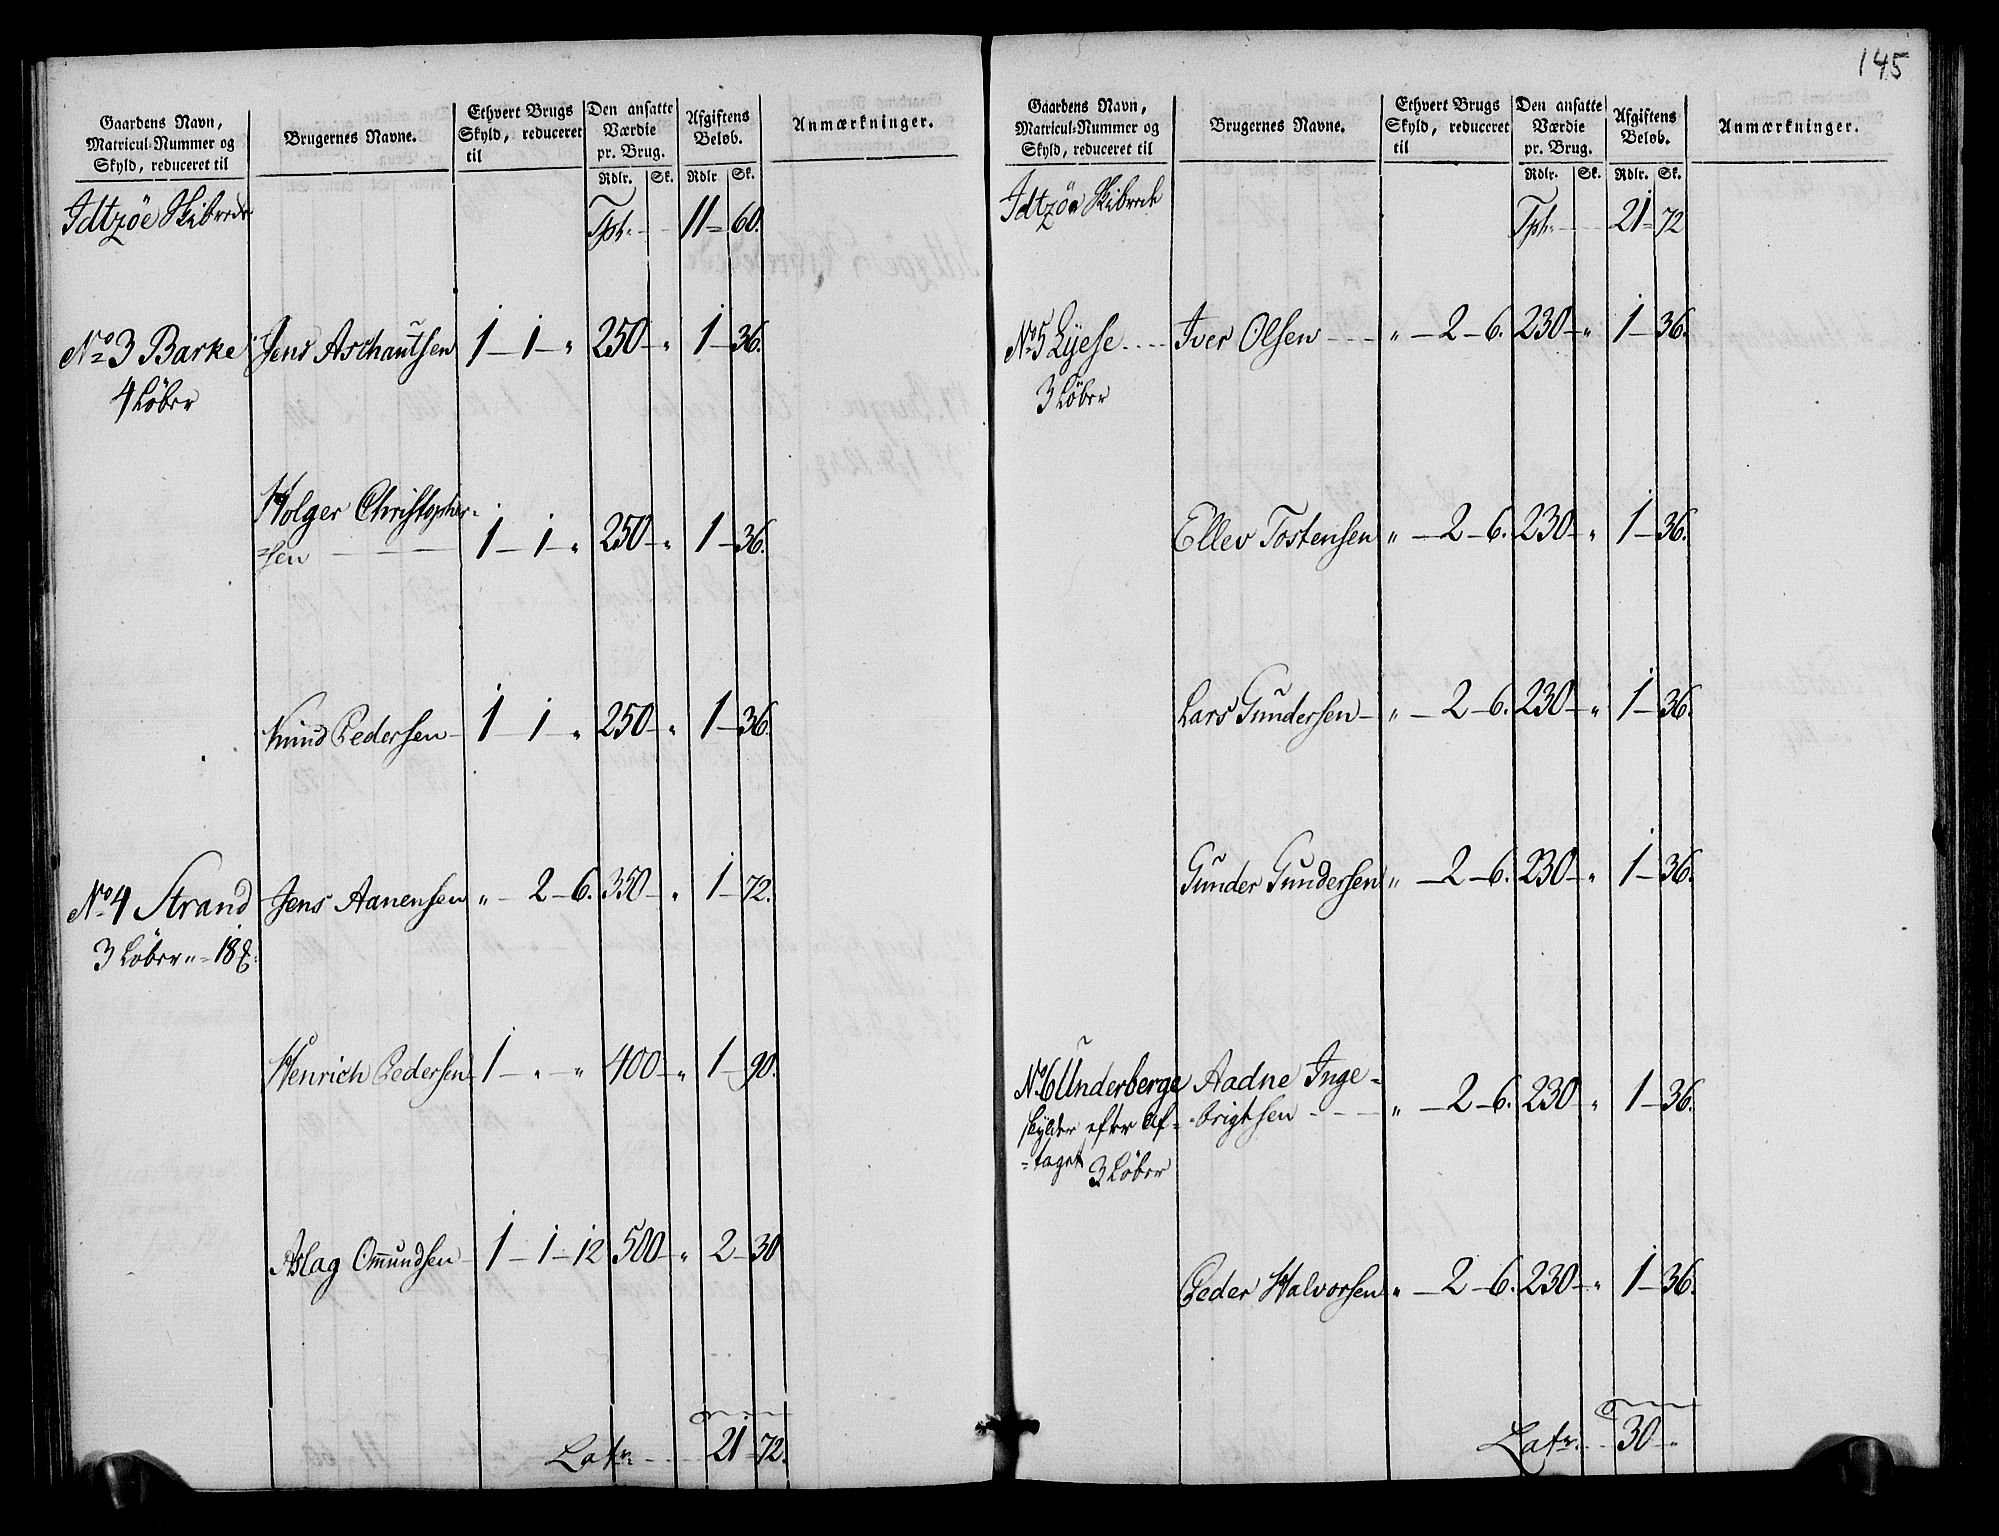 145
Gaardens Navn, Matricul-Nummer og Skyld, reduceret til | Brugernes Navne. | Ethvert Brugs Skyld, reduceret til | Den ansatte Værdie pr. Brug. | Afgiftens Beløb. | Anmærkninger.
Rdlr. Sk. Rdlr Sk.
Idtzöe Skibrede Tpt. 11 - 60.
No 3 Barke Jens Aschautsen 1 - 1 - " 250 - " 1 - 36.
4 Løber
Holger Christopher=
=sen 1 - 1 - " 250 - " 1 - 36.
Knud Pedersen 1 - 1 - " 250 - " 1 - 36.
No 4 Strand Jens Aanensen " - 2 - 6. 350 - " 1 - 72.
3 Løber " - 18
Henrich Pedersen 1 - " - " 400 - " 1 - 90.
Aslag Omundsen 1 - 1 - 12 500 - " 2 - 30
Latr. 21 - 72.
Gaardens Navn, Matricul-Nummer og Skyld, reduceret til | Brugernes Navne. | Ethvert Brugs Skyld, reduceret til | Den ansatte Værdie pr. Brug. | Afgiftens Beløb. | Anmærkninger.
Rdlr. Sk. Rdlr. Sk.
Idtzöe Skibrede Tpt. 21 - 72
No 5 Lyese Iver Olsen " - 2 - 6. 230 - " 1 - 36.
3 Løber
Ellev Tostensen " - 2 - 6. 230 - " 1 - 36.
Lars Gundersen " - 2 - 6. 230 - " 1 - 36.
Gunder Gundersen " - 2 - 6. 230 - " 1 - 36.
No 6 Underberge Aadne Inge=
skylder efter Af= brigtsen " - 2 - 6. 230 " 1 - 36.
=taget 3 Løber
Peder Halvorsen " - 2 - 6. 230 - " 1 - 36.
Latr. 30 - "